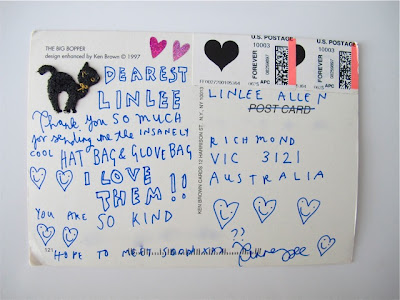 THE BIG BOPPER
design enhanced by Ken Brown © 1997
DEAREST
LINLEE
Thank you SO MUCH
for sending me the INSANELY
COOL HAT BAG & GLOVE BAG
I LOVE
THEM!!
YOU ARE SO KIND
HOPE TO MEET SOON XX
KEN BROWN CARDS 12 HARRISON ST. N.Y., NY 10013
U.S. POSTAGE
10003
FOREVER
APC
U.S. POSTAGE
10003
FOREVER
APC
LINLEE ALLEN
POST CARD
RICHMOND
VIC 3121
AUSTRALIA